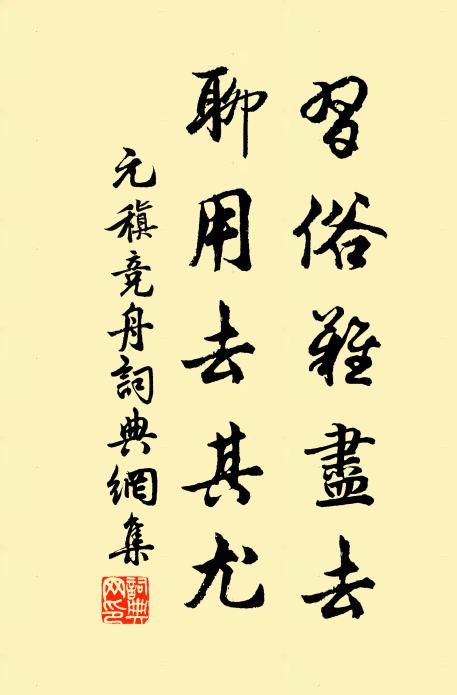 習俗難盡去
聊用去其尤
元稹竞舟詞典網集
詞典网印